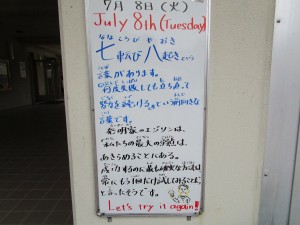 7月 8日(火)
July 8th (Tuesday)
七転び八起きという
言葉があります。
何度失敗しても立ち直って
努力を続けるという前向きな
言葉です。
発明家のエジソンは、
私たちの最大の弱点は、
あきらめることにある。
成功するのに最も確実な方法は
常にもう1回だけ試してみることだ。
と言ったそうです。
Let's try it again!